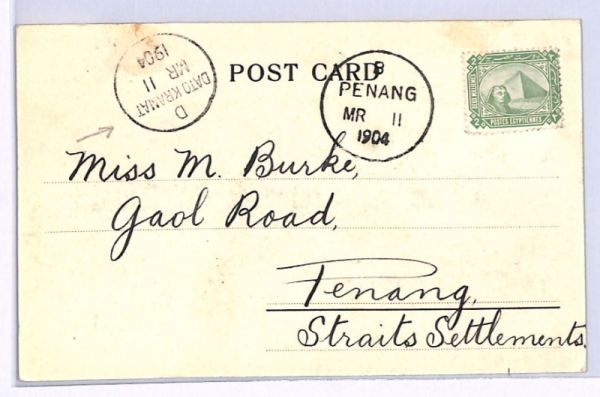 D
DATO KRAMAT
MR 11
1904
POST CARD
B
PENANG
MR 11
1904
POSTES EGYPTIENNES
Miss M. Burke,
Gaol Road,
Penang,
Straits Settlements.